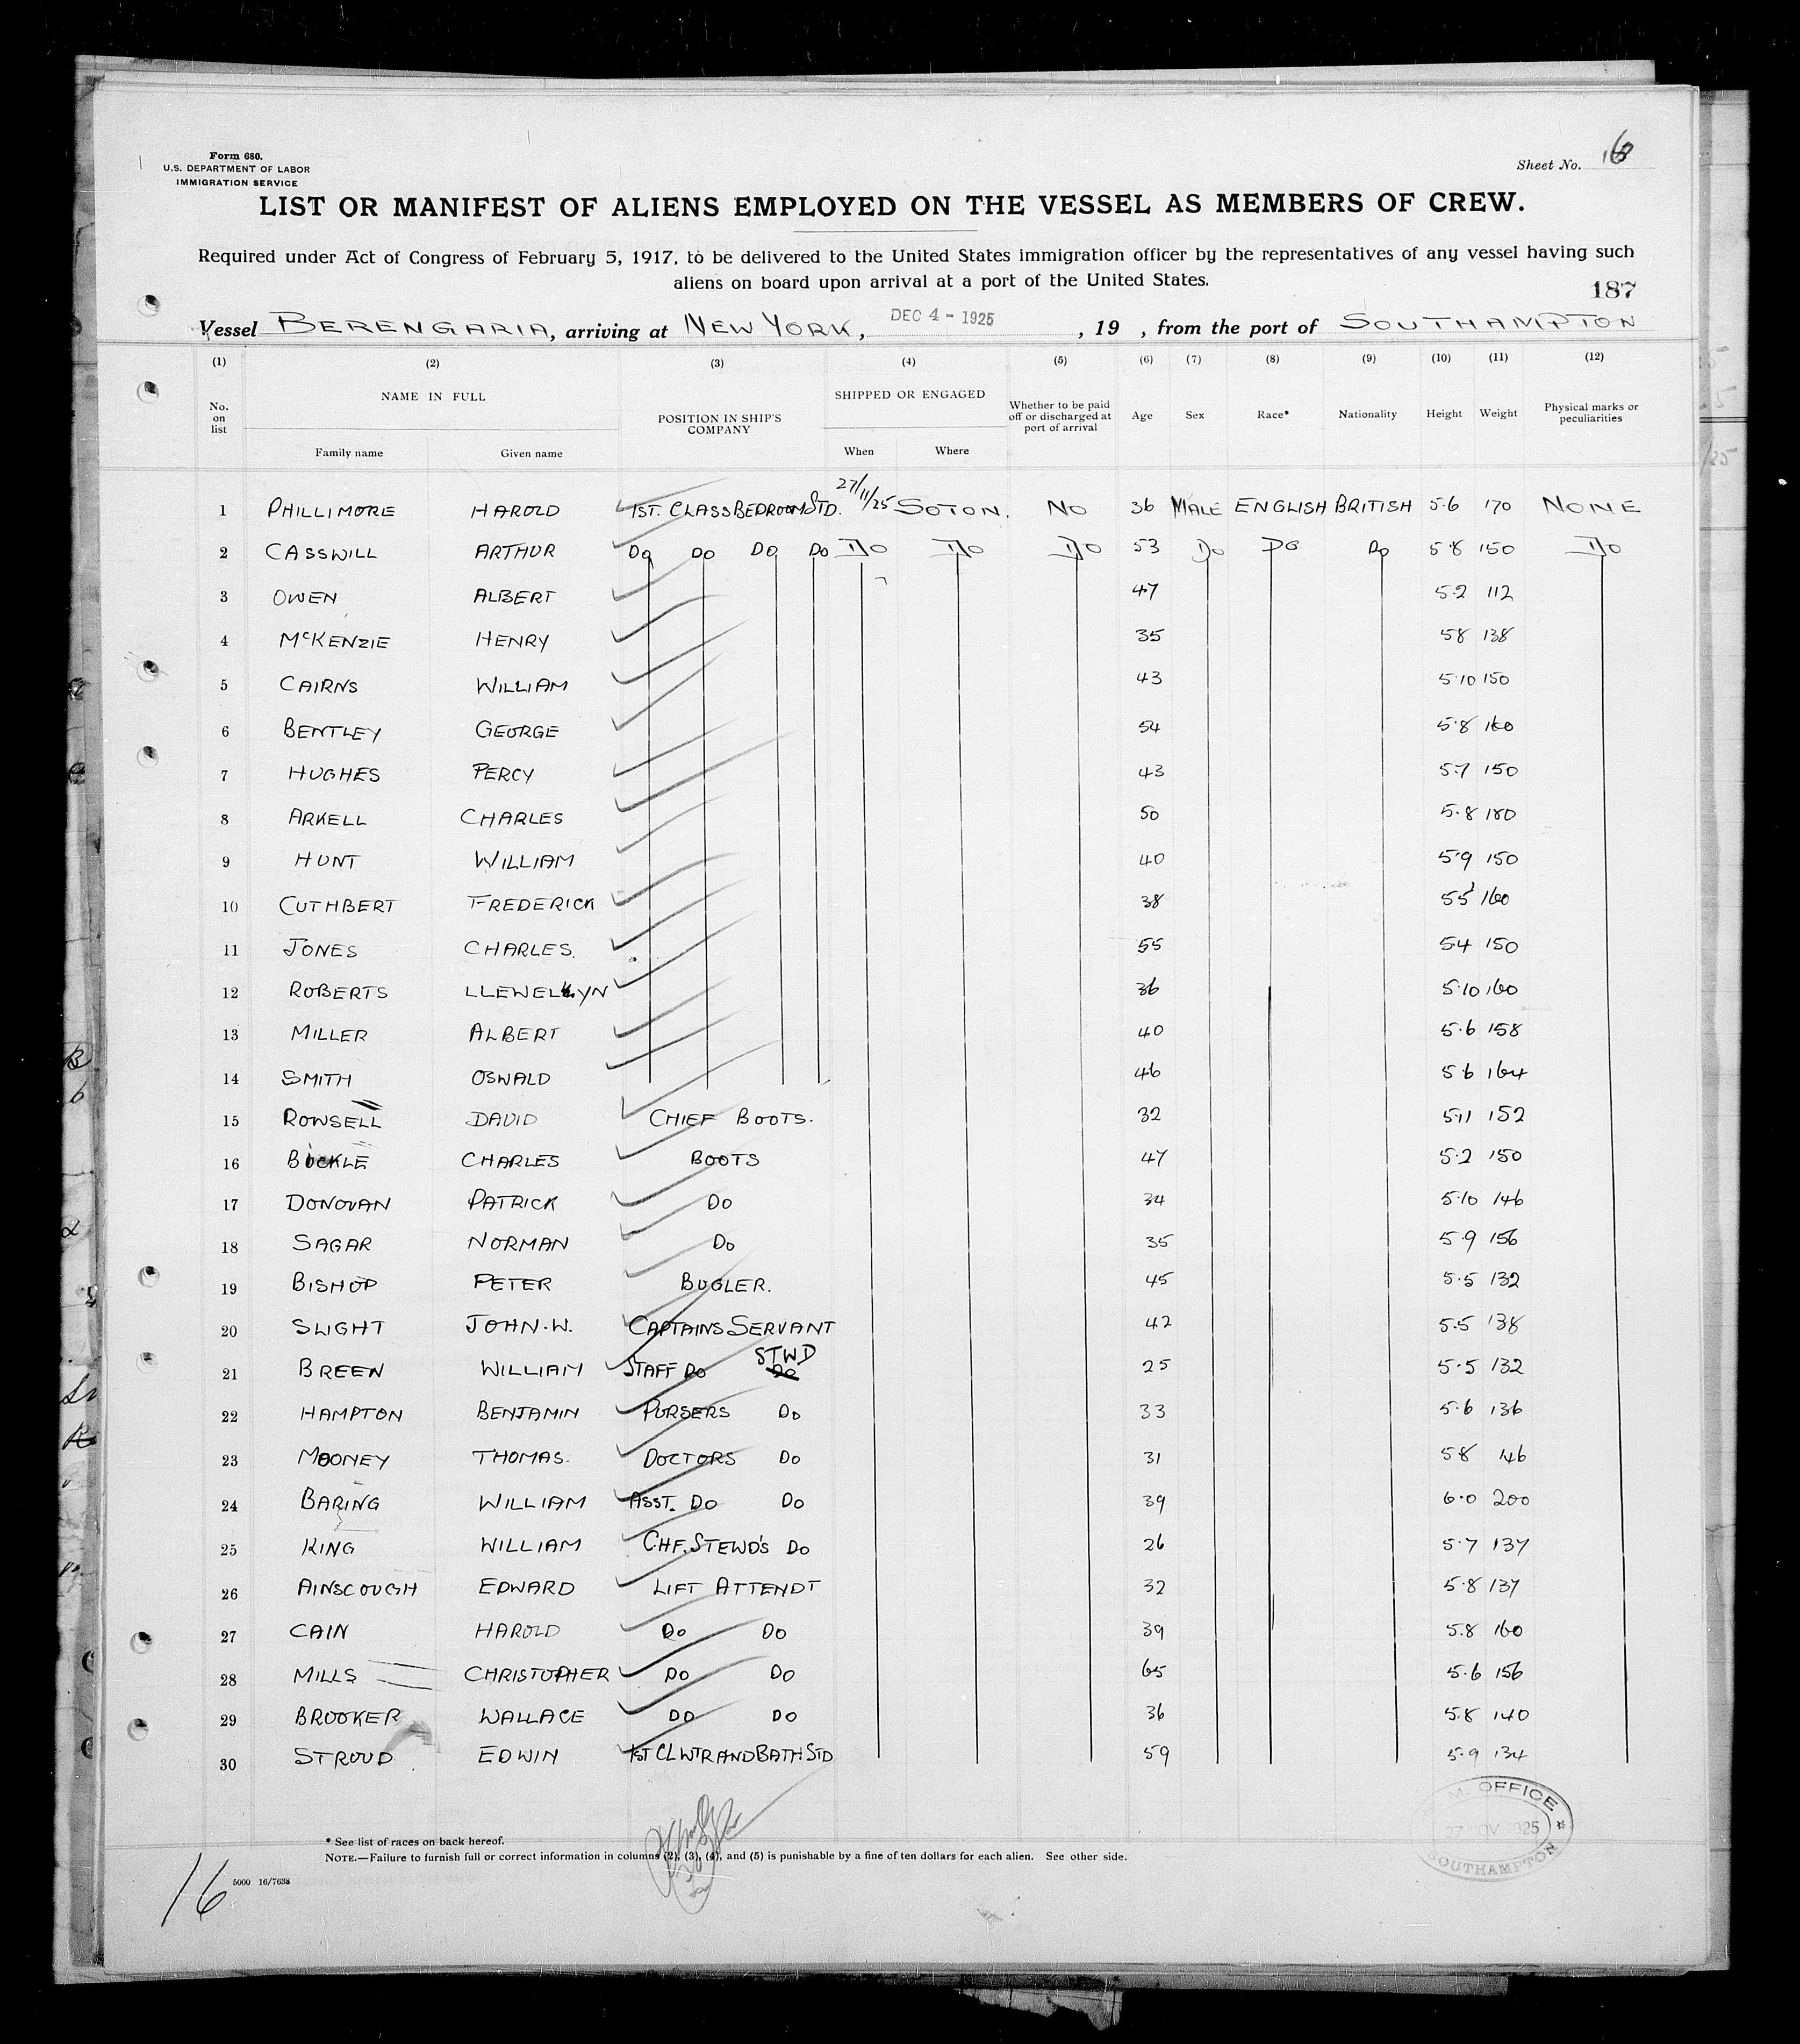 Form 680.
U.S. DEPARTMENT OF LABOR
IMMIGRATION SERVICE
Sheet No. 16
LIST OR MANIFEST OF ALIENS EMPLOYED ON THE VESSEL AS MEMBERS OF CREW.
Required under Act of Congress of February 5, 1917, to be delivered to the United States immigration officer by the representatives of any vessel having such
aliens on board upon arrival at a port of the United States.
187
Vessel BERENGARIA, arriving at NEW YORK, DEC 4 - 1925, 19 , from the port of SOUTHAMPTON
(1) (2) (3) (4) (5) (6) (7) (8) (9) (10) (11) (12)
No. on list NAME IN FULL Family name Given name POSITION IN SHIP'S COMPANY SHIPPED OR ENGAGED When Where Whether to be paid off or discharged at port of arrival Age Sex Race* Nationality Height Weight Physical marks or peculiarities
1 PHILLIMORE HAROLD 1ST. CLASS BEDROOM STD. 27/11/25 SOTON. NO 36 MALE ENGLISH BRITISH 5.6 170 NONE
2 CASSWILL ARTHUR DO DO DO DO DO DO DO 53 DO DO DO 5.8 150 DO
3 OWEN ALBERT 47 5.2 112
4 McKENZIE HENRY 35 5 8 138
5 CAIRNS WILLIAM 43 5.10 150
6 BENTLEY GEORGE 54 5.8 160
7 HUGHES PERCY 43 5.7 150
8 ARKELL CHARLES 50 5.8 180
9 HUNT WILLIAM 40 5.9 150
10 CUTHBERT FREDERICK 38 5 5 160
11 JONES CHARLES. 55 5.4 150
12 ROBERTS LLEWELLYN 36 5.10 160
13 MILLER ALBERT 40 5.6 158
14 SMITH OSWALD 46 5.6 164
15 ROWSELL DAVID CHIEF BOOTS. 32 5.11 152
16 BUCKLE CHARLES BOOTS 47 5.2 150
17 DONOVAN PATRICK DO 34 5.10 146
18 SAGAR NORMAN DO 35 5.9 156
19 BISHOP PETER BUGLER. 45 5.5 132
20 SLIGHT JOHN.W. CAPTAINS SERVANT 42 5.5 138
21 BREEN WILLIAM STAFF DO STWD DO 25 5.5 132
22 HAMPTON BENJAMIN PURSERS DO 33 5.6 136
23 MOONEY THOMAS. DOCTORS DO 31 5 8 146
24 BARING WILLIAM ASST. DO DO 39 6.0 200
25 KING WILLIAM CHF. STEWD'S DO 26 5.7 137
26 AINSCOUGH EDWARD LIFT ATTENDT 32 5.8 137
27 CAIN HAROLD DO DO 39 5.8 160
28 MILLS CHRISTOPHER DO DO 65 5.6 156
29 BROOKER WALLACE DO DO 36 5.8 140
30 STROUD EDWIN 1ST CL WTR AND BATH STD 59 5.9 134
* See list of races on back hereof.
NOTE.—Failure to furnish full or correct information in columns (2), (3), (4), and (5) is punishable by a fine of ten dollars for each alien. See other side.
5000 16/7638
16
M. OFFICE
27 NOV 1925
SOUTHAMPTON